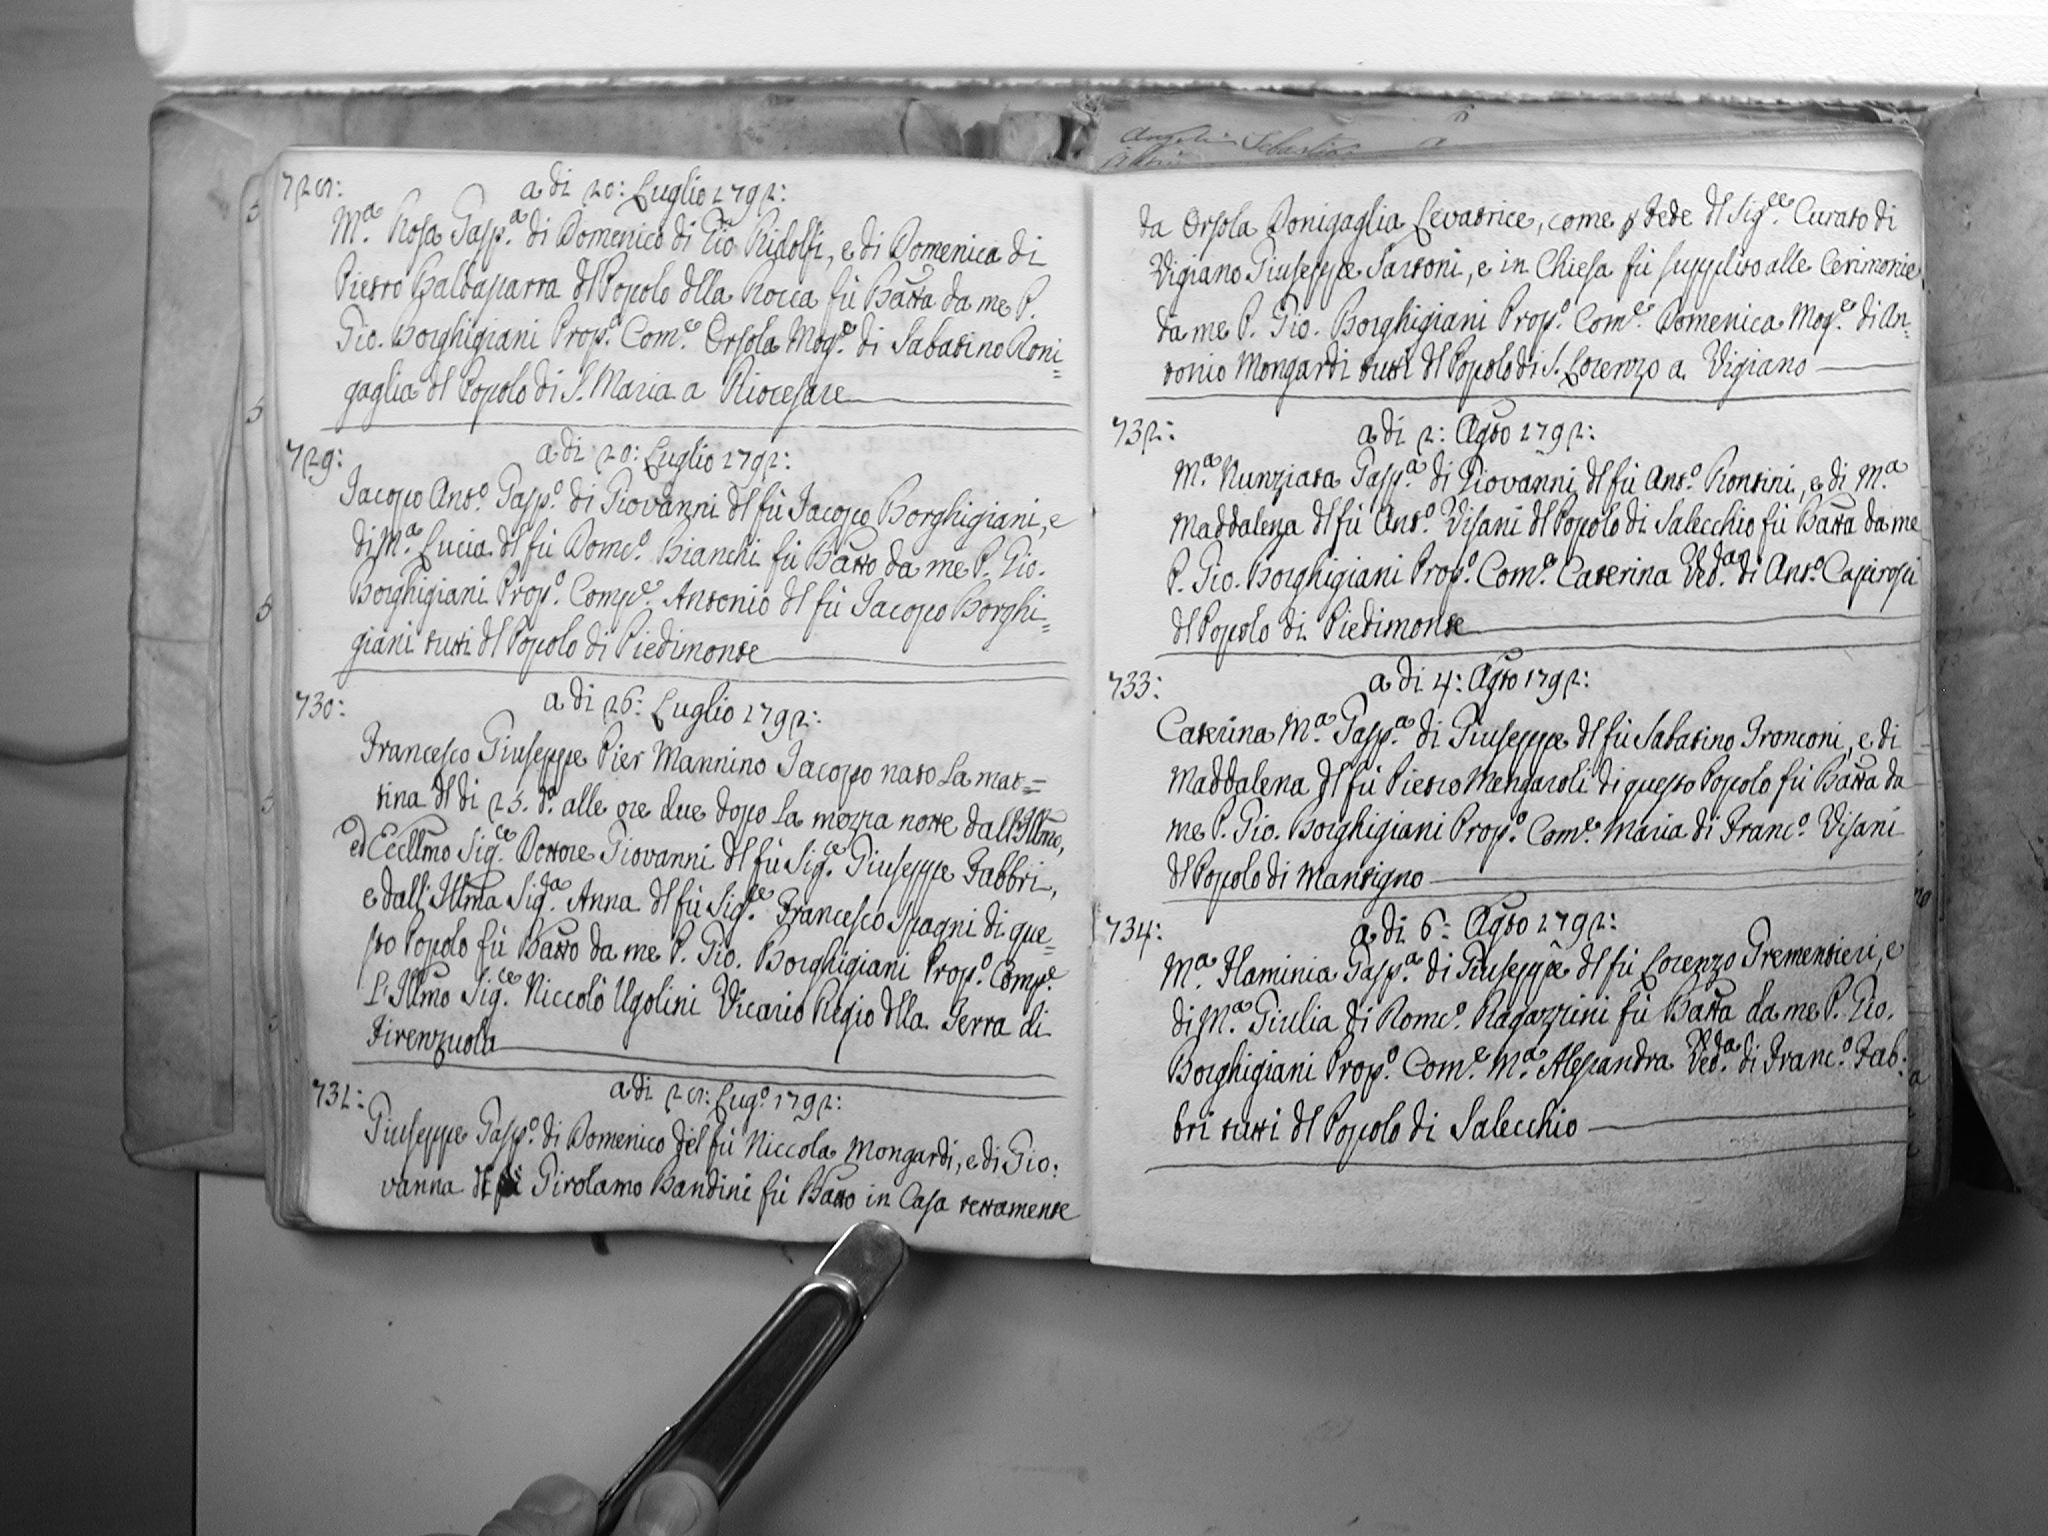 728:
a di 20: Luglio 1792:
M.ª Rosa Gasp.ª di Domenico di Gio Ridolfi, e di Domenica di
Pietro Baldaparra dl Popolo dlla Rocca fù Batta da me P.
Gio. Borghigiani Prop.º Com.e Orsola Mog.e di Sabatino Roni=
gaglia dl Popolo di S. Maria a Riocesare
729:
a di 20: Luglio 1792:
Jacopo Ant.º Gasp.º di Giovanni dl fù Jacopo Borghigiani, e
di M.ª Lucia dl fù Dom.co Bianchi fù Batto da me P. Gio.
Borghigiani Prop.º Comp.e Antonio dl fù Jacopo Borghi=
giani tutti dl Popolo di Piedimonte
730:
a di 26: Luglio 1792:
Francesco Giuseppe Pier Mannino Jacopo nato la mat=
tina dl di 25. d.º alle ore due dopo la mezza notte dall'Illmo,
ed Eccllmo Sig.re Dottore Giovanni dl fù Sig.re Giuseppe Fabbri,
e dall'Illma Sig.ra Anna dl fù Sig.re Francesco Spagni di que=
sto Popolo fù Batto da me P. Gio. Borghigiani Prop.º Comp.e
L'Illmo Sig.re Niccolò Ugolini Vicario Regio dlla Terra di
Firenzuola
731:
a di 28: Lug.º 1792:
Giuseppe Gasp.º di Domenico del fù Niccola Mongardi, e di Gio:
vanna dl fù Girolamo Bandini fù Batto in Casa rettamente
Angeli Sebastian
da Orsola Donigaglia Levatrice, come p fede dl Sig.re Curato di
Vigiano Giuseppe Sartoni, e in Chiesa fù supplito alle Cerimonie
da me P. Gio. Borghigiani Prop.º Com.e Domenica Mog.e di An=
tonio Mongardi tutti dl Popolo di S. Lorenzo a Vigiano
732:
a di 2: Agto 1792:
M.ª Nunziata Gasp.ª di Giovanni dl fù Ant.º Rontini, e di M.ª
Maddalena dl fù Ant.º Visani dl Popolo di Salecchio fù Batta da me
P. Gio. Borghigiani Prop.º Com.e Caterina Ved.ª di Ant.º Capirossi
dl Popolo di Piedimonte
733:
a di 4: Agto 1792:
Caterina M.ª Gasp.ª di Giuseppe dl fù Sabatino Tronconi, e di
Maddalena dl fù Pietro Mengaroli di questo Popolo fù Batta da
me P. Gio. Borghigiani Prop.º Com.e Maria di Franc.º Visani
dl Popolo di Mantigno
734:
a di 6: Agto 1792:
M.ª Flaminia Gasp.ª di Giuseppe dl fù Lorenzo Trementieri, e
di M.ª Giulia di Dom.co Ragazzini fù Batta da me P. Gio.
Borghigiani Prop.º Com.e M.ª Alessandra Ved.ª di Franc.º Fab:
bri tutti dl Popolo di Salecchio